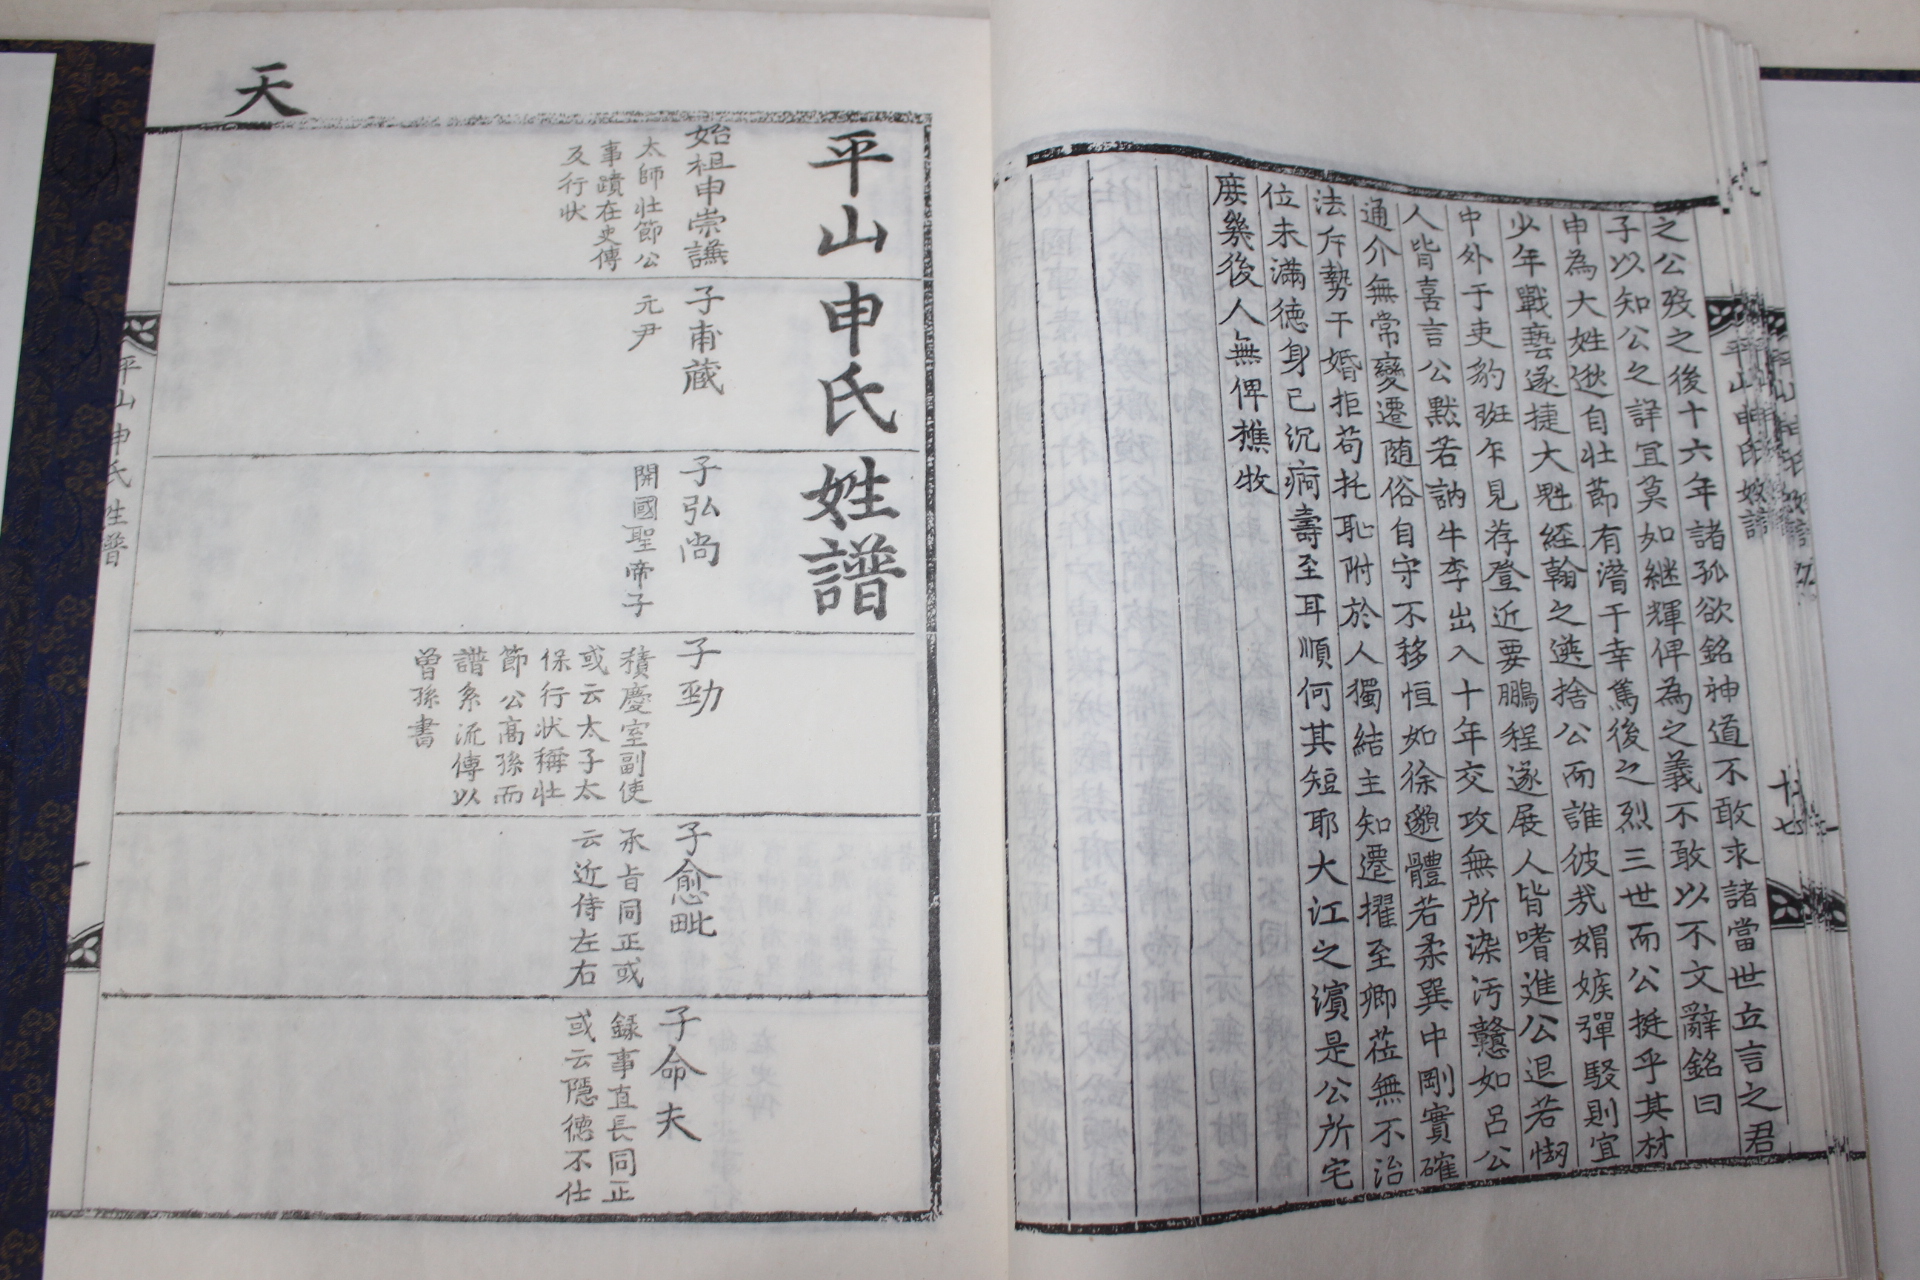 之公歿之後十六年諸孤欲銘神道不敢求諸當世立言之君
子以知公之詳宜莫如継輝俾為之義不敢以不文辭銘曰
申為大姓逖自壮節有濳于幸篤後之烈三世而公挺乎其材
少年戰藝遂捷大魁經翰之選捨公而誰彼㢤媢嫉彈駁則宜
中外于吏豹班乍見荐登近要鵬程遂展人皆嗜進公退若惻
人皆喜言公黙若訥牛李出入十年交攻無所染汚戇如呂公
通介無常變遷随俗自守不移恒如徐邈體若柔巽中剛實確
法斥勢干婚拒苟托恥附於人獨結主知遷擢至卿莅無不治
位未滿徳身已沉痾壽至耳順何其短耶大江之濱是公所宅
庻㡬後人無俾樵牧
平山申氏姓譜
十七
天
平山申氏姓譜
始祖申崇謙
太師壮節公
事蹟在史傳
及行状
子甫蔵
元尹
子弘尚
開國聖帝子
子勁
積慶室副使
或云太子太
保行状稱壮
節公髙孫而
譜系流傳以
曾孫書
子愈毗
承旨同正或
云近侍左右
子命夫
録事直長同正
或云隠徳不仕
平山申氏姓譜
一